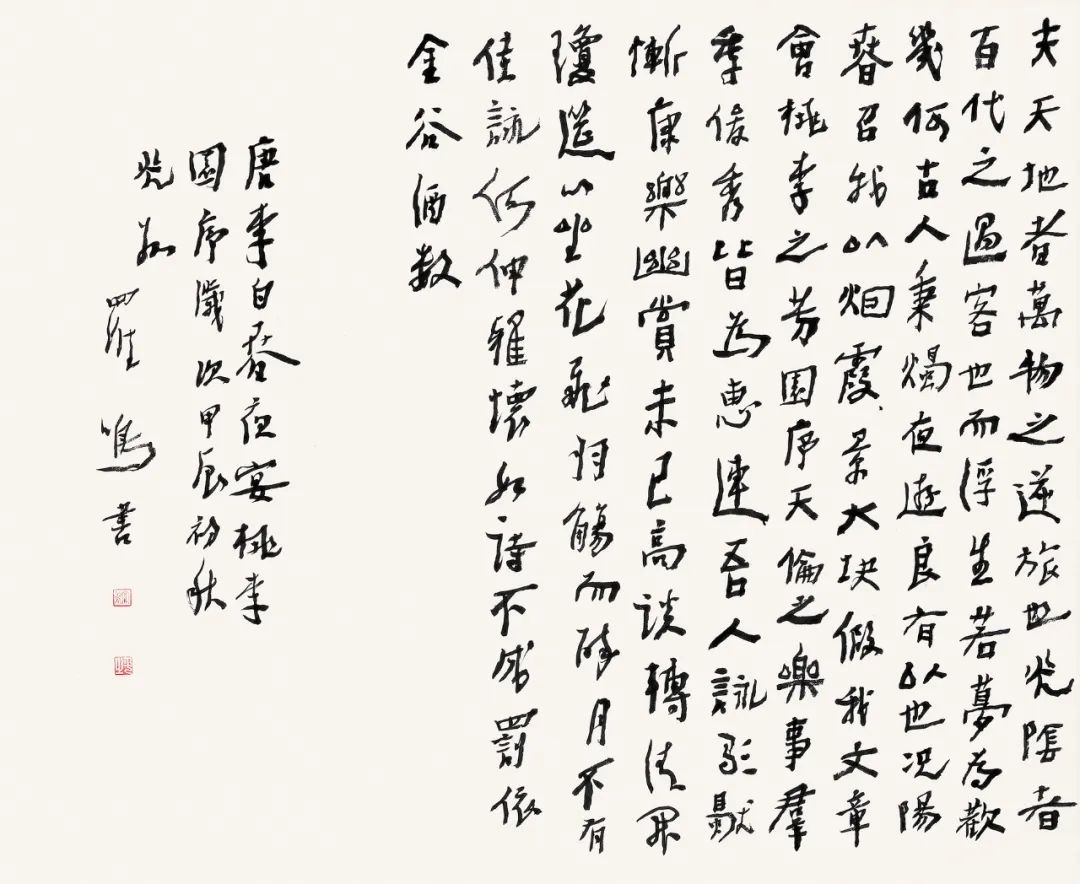 夫天地者萬物之逆旅也光陰者
百代之過客也而浮生若夢為歡
幾何古人秉燭夜遊良有以也况陽
春召我以烟霞景大块假我文章
會桃李之芳園序天倫之樂事羣
季俊秀皆為惠連吾人詠歌獨
慚康樂幽賞未已高談轉清開
瓊筵以坐花飛羽觴而醉月不有
佳詠何伸雅懷如詩不成罰依
金谷酒数
唐李白春夜宴桃李
園序歲次甲辰初秋
光州
羅鳴書